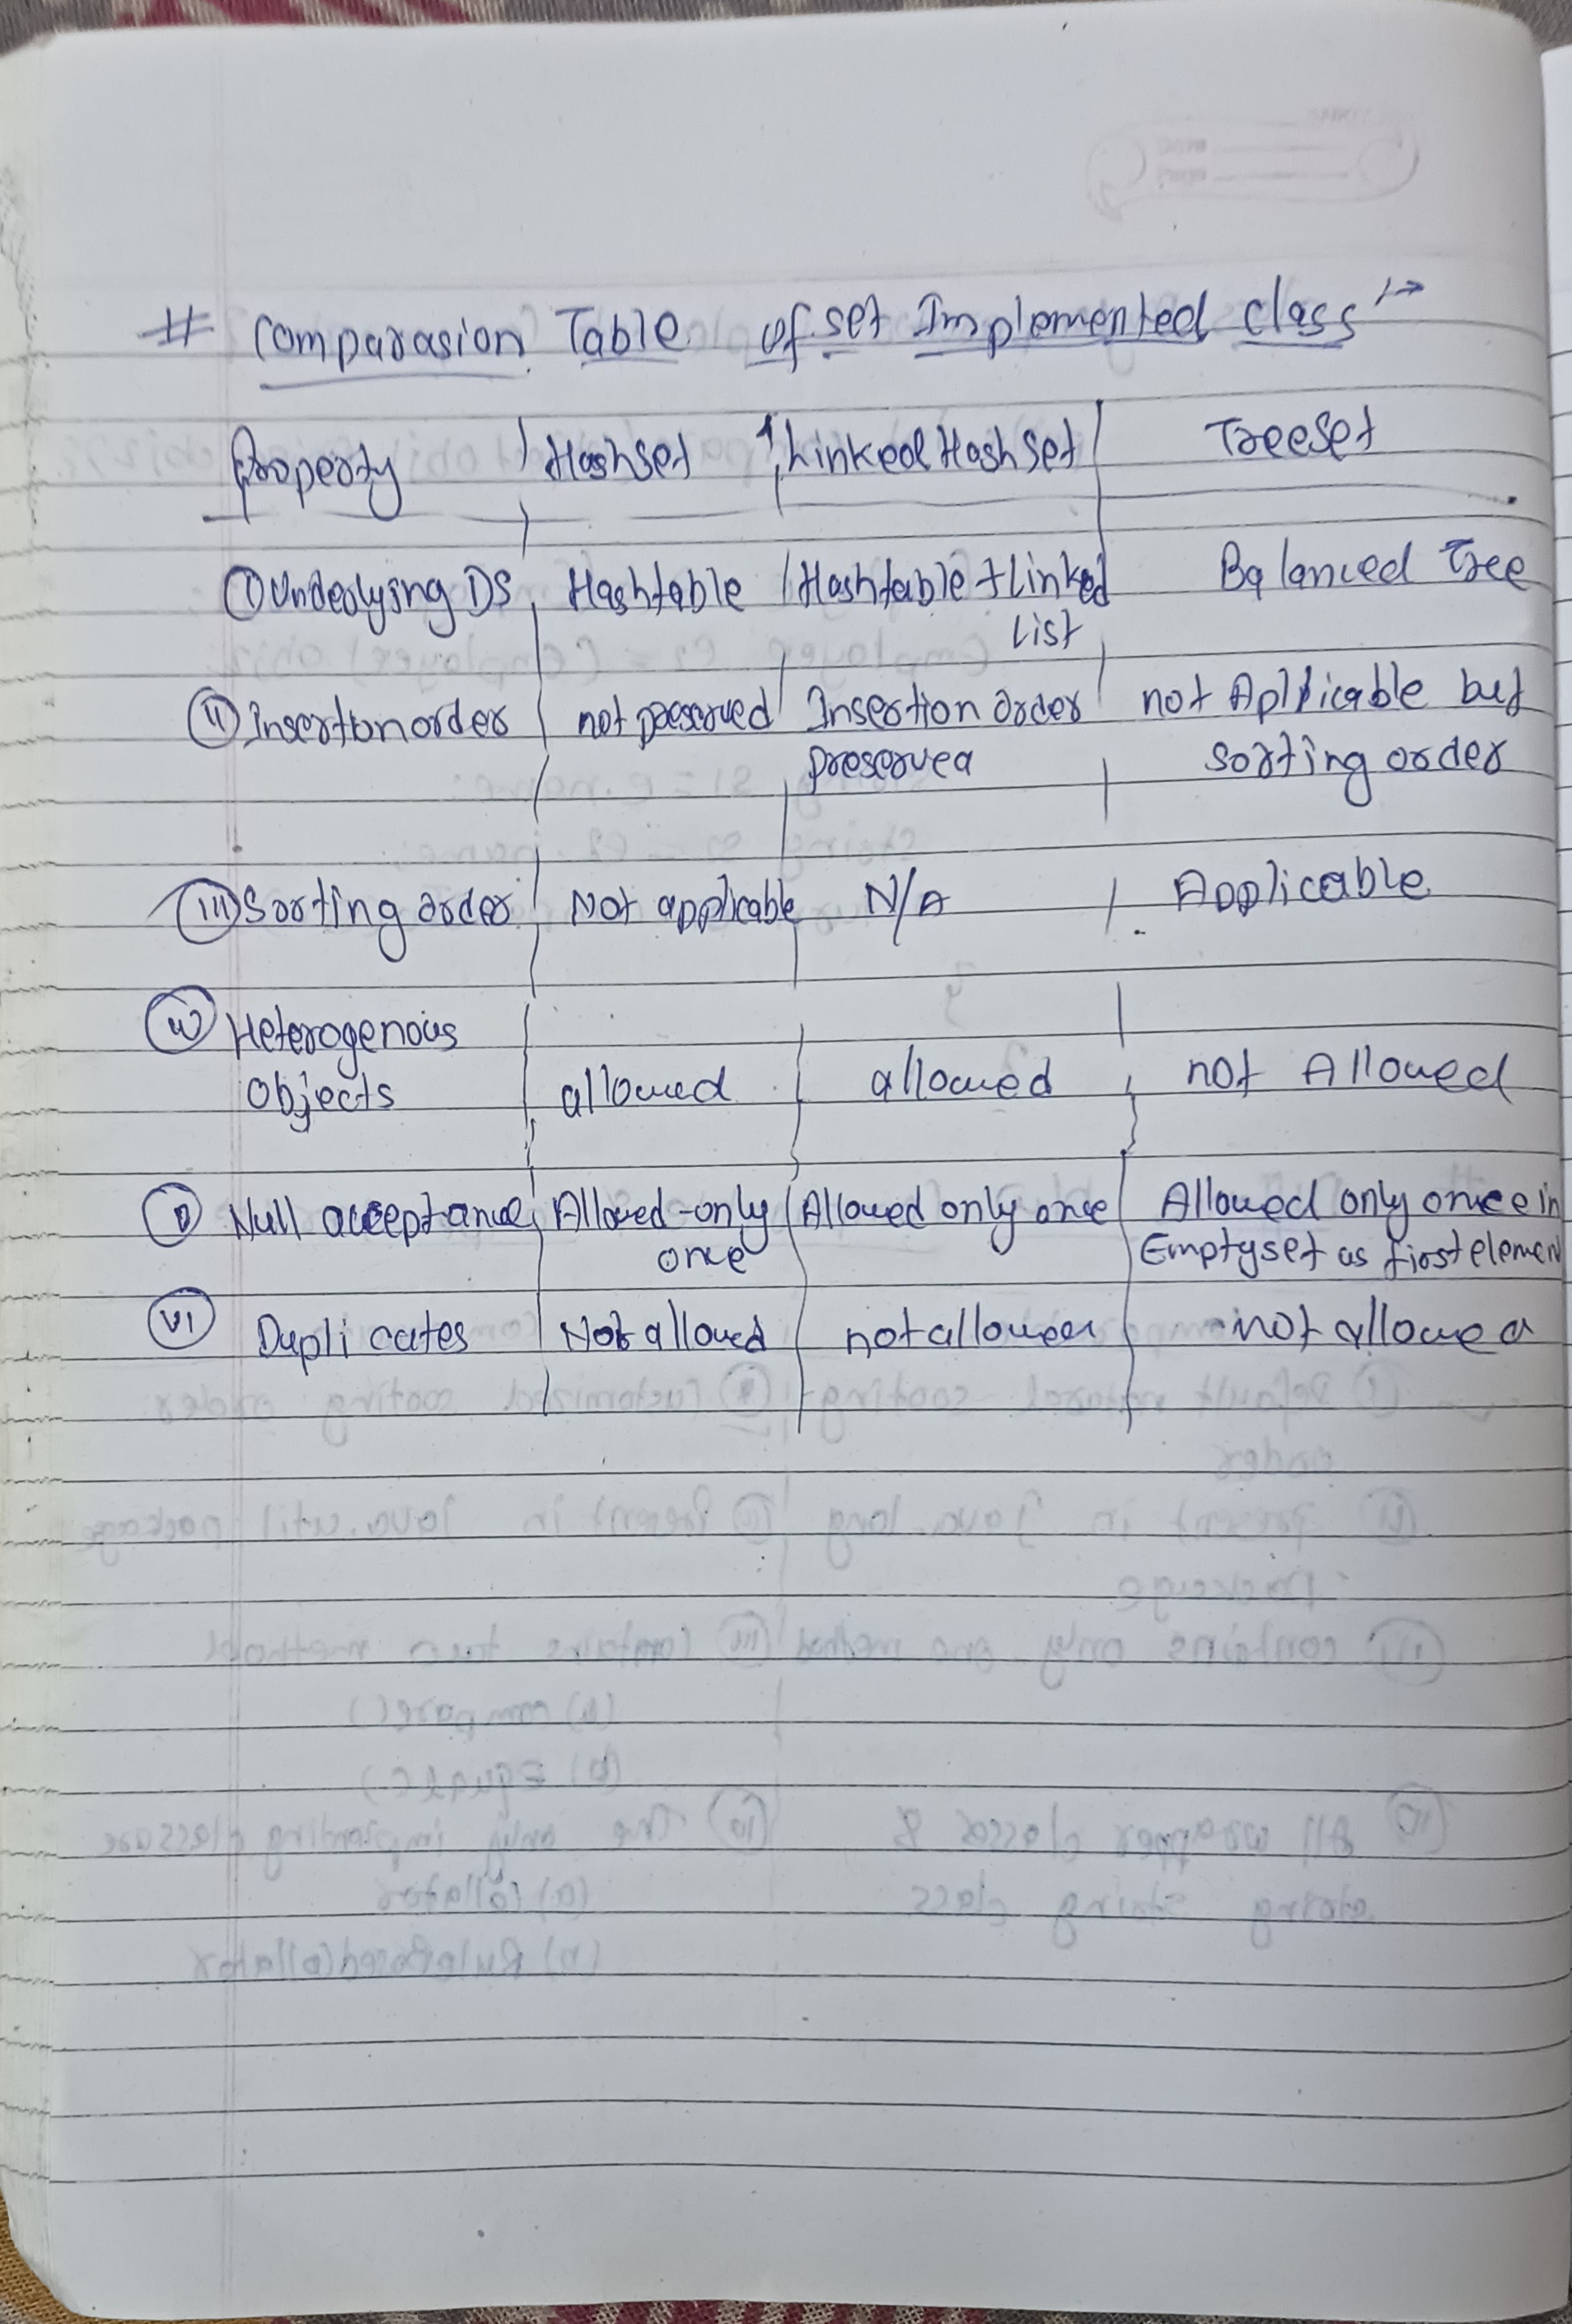 # Comparasion Table of set Implemented class :→
Property | Hashset | Linked Hash Set | TreeSet
(i) Underlying DS | Hashtable | Hashtable + Linked List | Balanced Tree
(ii) Insertion order | not preserved | Insertion order preserved | not Aplpicable but sorting order
(iii) Sorting order | Not applicable | N/A | Applicable
(iv) Heterogenous Objects | allowed | allowed | not Allowed
(v) Null acceptance | Allowed only once | Allowed only once | Allowed only once in Empty set as first element
(vi) Duplicates | Not allowed | not allowed | not allowed